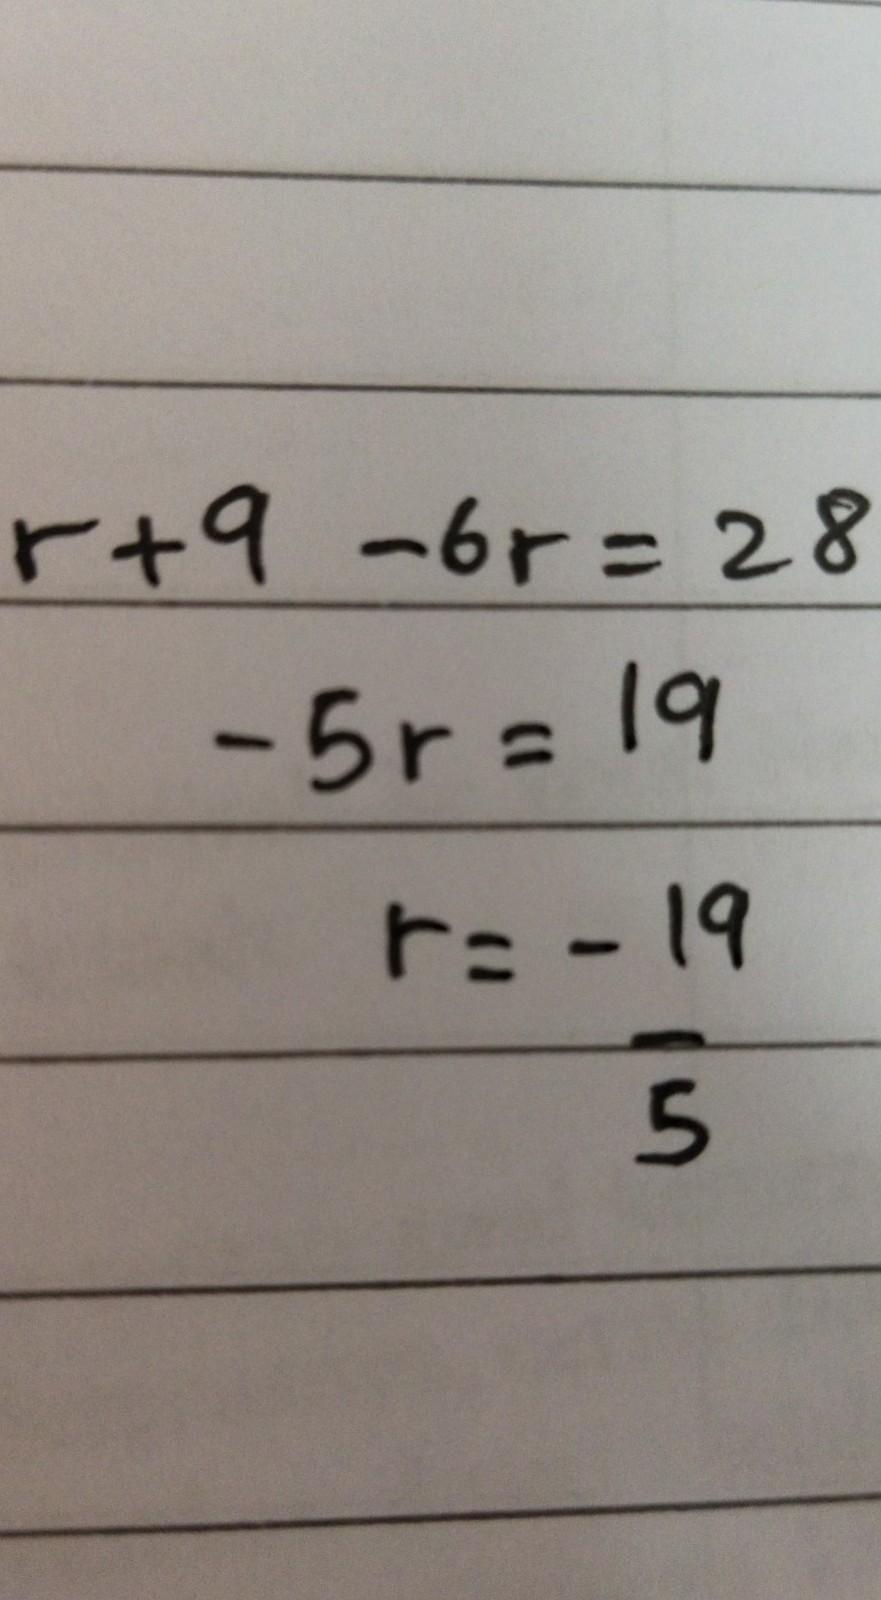 r+9 -6r = 28
-5r = 19
r = - 19
5